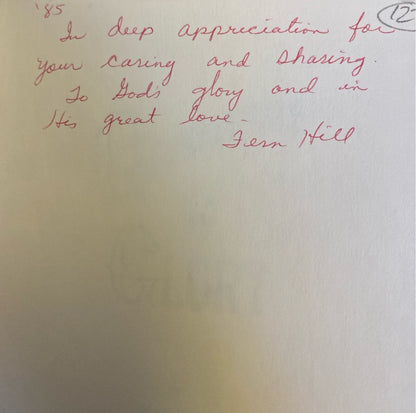 '85
In deep appreciation for
your caring and sharing.
To God's glory and in
His great love -
Fern Hill